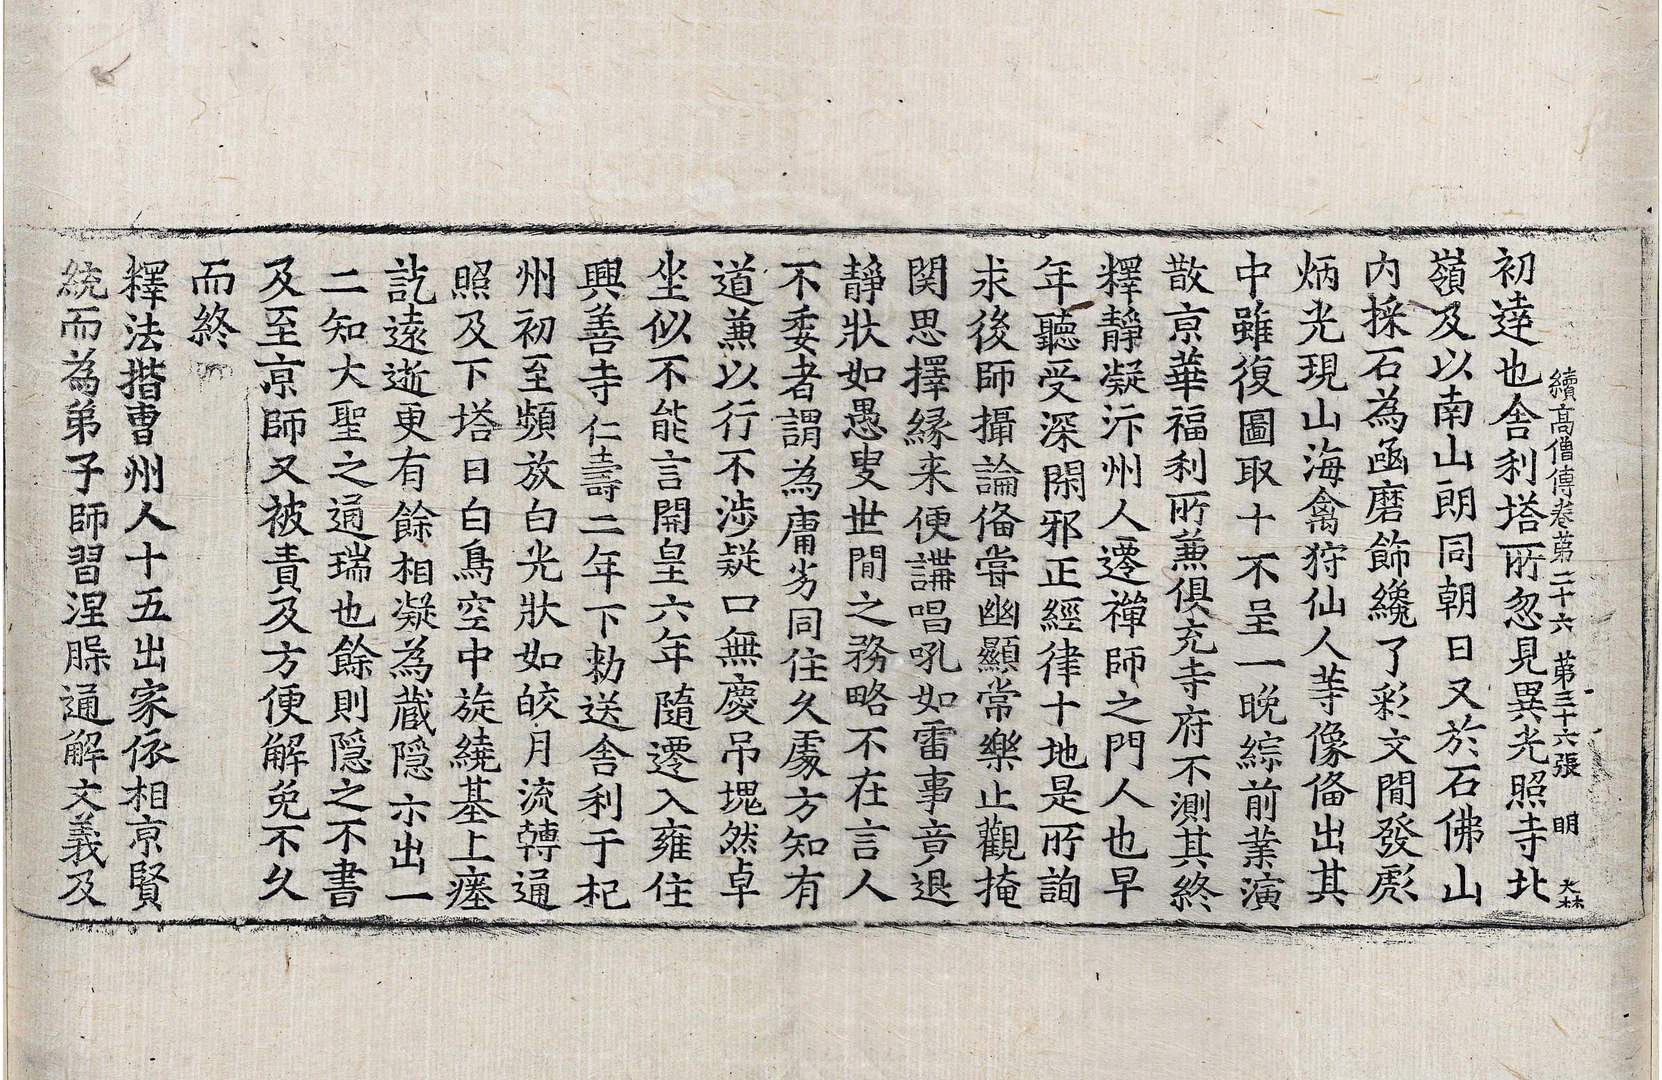 續高僧傳卷第二十六 第三十六張 明 大林
初達也舍利塔所忽見異光照寺北
嶺及以南山朗同朝日又於石佛山
内採石為凾磨飾纔了彩文間發彪
炳光現山海禽狩仙人等像俻出其
中雖復圖取十不呈一晚綜前業演
散京華福利所兼俱充寺府不測其終
釋靜凝汴州人遷禪師之門人也早
年聽受深閑邪正經律十地是所詢
求後師攝論俻甞幽顯常樂止觀掩
関思擇縁来便講唱吼如雷事竟退
靜狀如愚叟世間之務略不在言人
不委者謂為庸劣同住久處方知有
道兼以行不涉疑口無慶吊塊然卓
坐似不能言開皇六年隨遷入雍住
興善寺仁壽二年下勑送舍利于杞
州初至頻放白光狀如皎月流轉通
照及下塔日白鳥空中旋繞基上瘞
訖遠逝更有餘相凝為藏隠示出一
二知大聖之通瑞也餘則隠之不書
及至京師又被責及方便解免不久
而終
釋法揩曹州人十五出家依相京賢
統而為弟子師習涅槃通解文義及